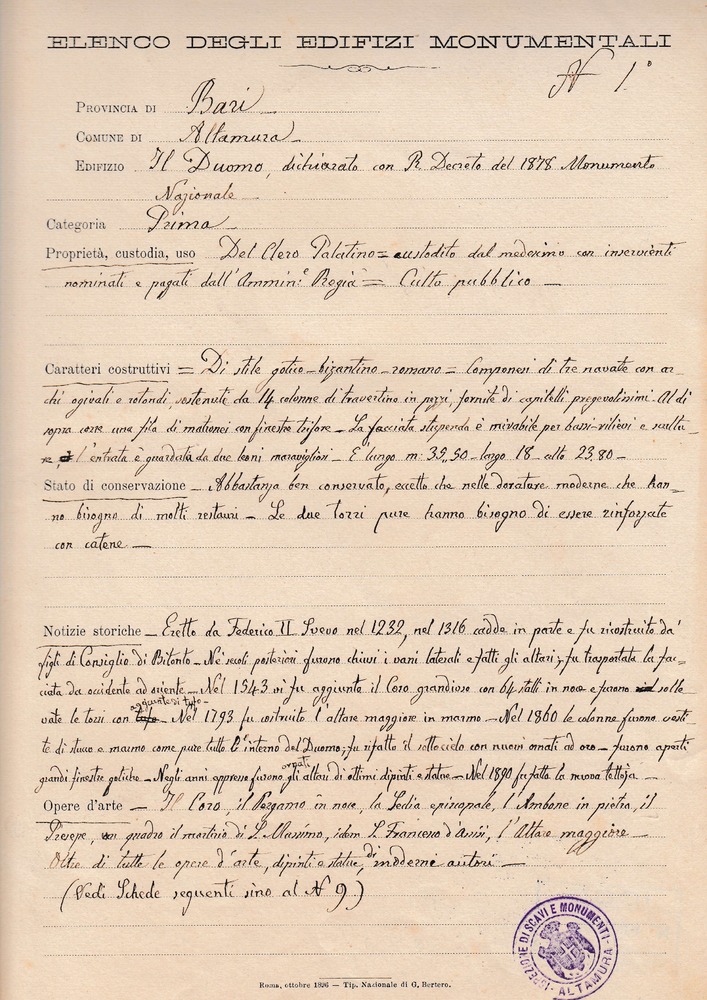 ELENCO DEGLI EDIFIZI MONUMENTALI
N 1°
PROVINCIA DI Bari
COMUNE DI Altamura
EDIFIZIO Il Duomo, dichiarato con R. Decreto del 1878 Monumento
Nazionale
Categoria Prima
Proprietà, custodia, uso Del Clero Palatino = custodito dal medesimo con inservienti
nominati e pagati dall'Ammin.e Regia = Culto pubblico —
Caratteri costruttivi = Di stile gotico-bizantino-romano = Componesi di tre navate con ar
chi ogivali e rotondi, sostenuti da 14 colonne di travertino in pezzi, fornite di capitelli pregevolissimi. Al di
sopra corre una fila di matronei con finestre trifore — La facciata stupenda è mirabile per bassi-rilievi e scultu-
re, l'entrata è guardata da due leoni maravigliosi — È lungo m. 35,50 — largo 18 — alto 23,80 —
Stato di conservazione — Abbastanza ben conservato, eccetto che nelle dorature moderne che han=
no bisogno di molti restauri — Le due torri pure hanno bisogno di essere rinforzate
con catene —
Notizie storiche — Eretto da Federico II Svevo nel 1232, nel 1316 cadde in parte e fu ricostruito da'
figli di Consiglio di Bitonto — Ne' secoli posteriori furono chiusi i vani laterali e fatti gli altari; fu trasportata la fac=
ciata da occidente ad oriente — Nel 1543 vi fu aggiunto il Coro grandioso con 64 stalli in noce e furono solle
vate le torri con aggiunte di tufo — Nel 1793 fu costruito l'altare maggiore in marmo — Nel 1860 le colonne furono vesti
te di stucco e marmo come pure tutto l'interno del Duomo; fu rifatto il sottocielo con nuovi ornati ad oro — furono aperti
grandi finestre gotiche — Negli anni appresso furono ornati gli altari di ottimi dipinti e statue — Nel 1890 fu fatta la nuova tettoja —
Opere d'arte — Il Coro, il Pergamo in noce, la Sedia episcopale, l'Ambone in pietra, il
Presepe, un quadro il martirio di S. Massimo, idem S. Francesco d'Assisi, l'Altare maggiore
Oltre di tutte le opere d'arte, dipinti e statue, di moderni autori —
(Vedi Schede seguenti sino al N 9.)
ISPEZIONE DI SCAVI E MONUMENTI - ALTAMURA
Roma, ottobre 1896 — Tip. Nazionale di G. Bertero.